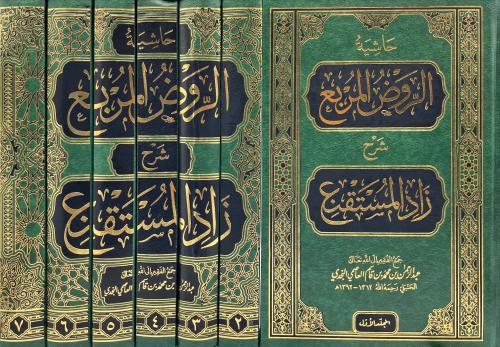 حاشية
الروض المربع
شرح
زاد المستقنع
جمع الفقير إلى الله تعالى
عبد الرحمن بن محمد بن قاسم العاصمي النجدي
الحنبلي رحمه الله ١٣١٢-١٣٩٢هـ
المجلد الأول
حاشية
الروض المربع
شرح
زاد المستقنع
جمع الفقير إلى الله تعالى
عبد الرحمن بن محمد بن قاسم العاصمي النجدي
٢ ٣ ٤ ٥ ٦ ٧